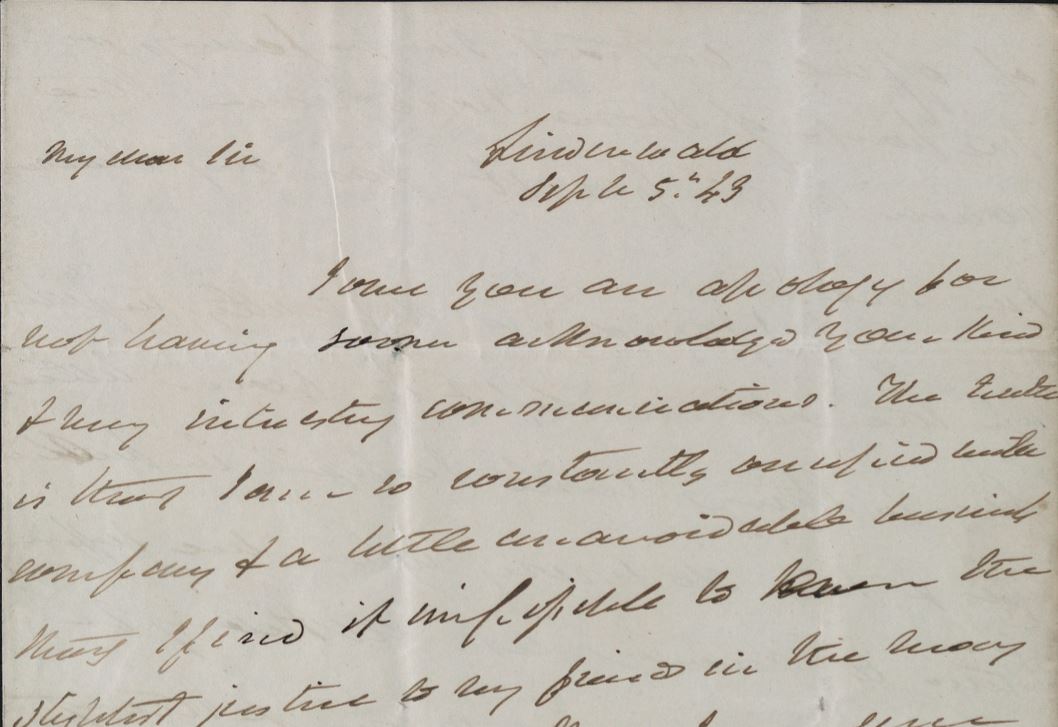 My dear Sir
Lindenwald
Septr 5th 43
I owe you an apology for
not having sooner acknowledged your kind
& very interesting communications. The truth
is that I am so constantly occupied with
company & a little unavoidable business
that I find it impossible to the
slightest justice to my friends in the way